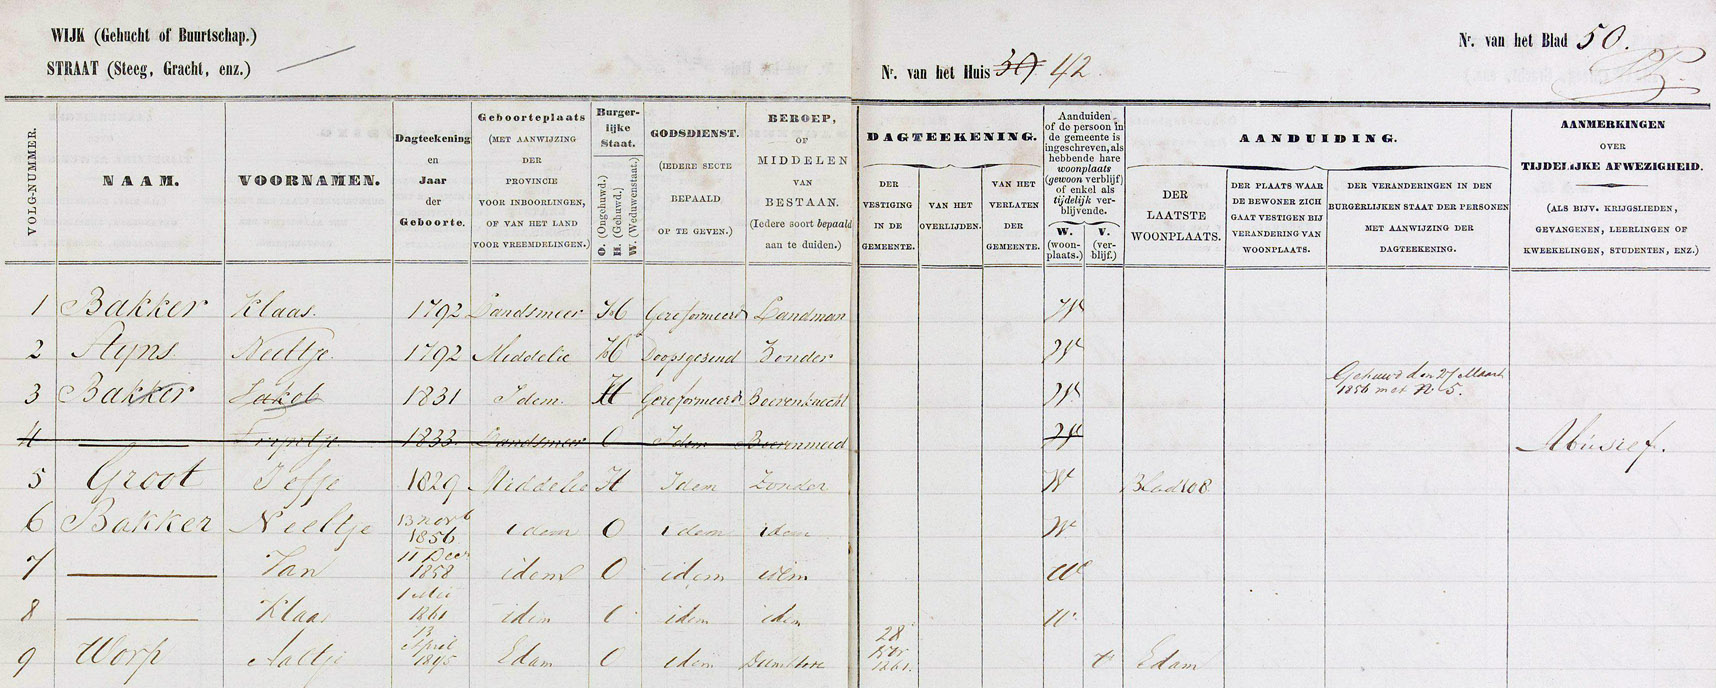 WIJK (Gehucht of Buurtschap.)
STRAAT (Steeg, Gracht, enz.)
Nr. van het Huis 39. 42.
Nr. van het Blad 50.
VOLG-NUMMER.
NAAM.
VOORNAMEN.
Dagteekening
en
Jaar
der
Geboorte.
Geboorteplaats
(MET AANWIJZING
DER
PROVINCIE
VOOR INBOORLINGEN,
OF VAN HET LAND
VOOR VREEMDELINGEN.)
Burger-
lijke
Staat.
O. (Ongehuwd.)
H. (Gehuwd.)
W. (Weduwenstaat.)
GODSDIENST.
(IEDERE SECTE
BEPAALD
OP TE GEVEN.)
BEROEP,
OF
MIDDELEN
VAN
BESTAAN.
(Iedere soort bepaald
aan te duiden.)
DAGTEEKENING.
DER
VESTIGING
IN DE
GEMEENTE.
VAN HET
OVERLIJDEN.
VAN HET
VERLATEN
DER
GEMEENTE.
Aanduiden
of de persoon in
de gemeente is
ingeschreven, als
hebbende hare
woonplaats
(gewoon verblijf)
of enkel als
tijdelijk ver-
blijvende.
W.
(woon-
plaats.)
V.
(ver-
blijf.)
AANDUIDING.
DER
LAATSTE
WOONPLAATS.
DER PLAATS WAAR
DE BEWONER ZICH
GAAT VESTIGEN BIJ
VERANDERING VAN
WOONPLAATS.
DER VERANDERINGEN IN DEN
BURGERLIJKEN STAAT DER PERSONEN
MET AANWIJZING DER
DAGTEEKENING.
AANMERKINGEN
OVER
TIJDELIJKE AFWEZIGHEID.
(ALS BIJV. KRIJGSLIEDEN,
GEVANGENEN, LEERLINGEN OF
KWEEKELINGEN, STUDENTEN, ENZ.)
1 Bakker Klaas. 1792 Landsmeer H Gereformeerd Landman W
2 Neeltje 1792 Middelie H Doopsgezind Zonder W
3 Bakker Jakob 1831 Idem. H Gereformeerd Boerenknecht W Gehuwd den 27 Maart
1856 met No 5.
4 Trijntje 1833 Landsmeer O Idem Boerenmeid W Abusief.
5 Groot 1829 Middelie H Idem Zonder W Blad 108
6 Bakker Neeltje 13 novb 1856 idem O idem idem W
7 Jan 11 Decr 1858 idem O idem idem W
8 Klaas 1 Mei 1861 idem O idem idem W
9 Worp Aaltje 13 April Edam O idem 28 V Edam